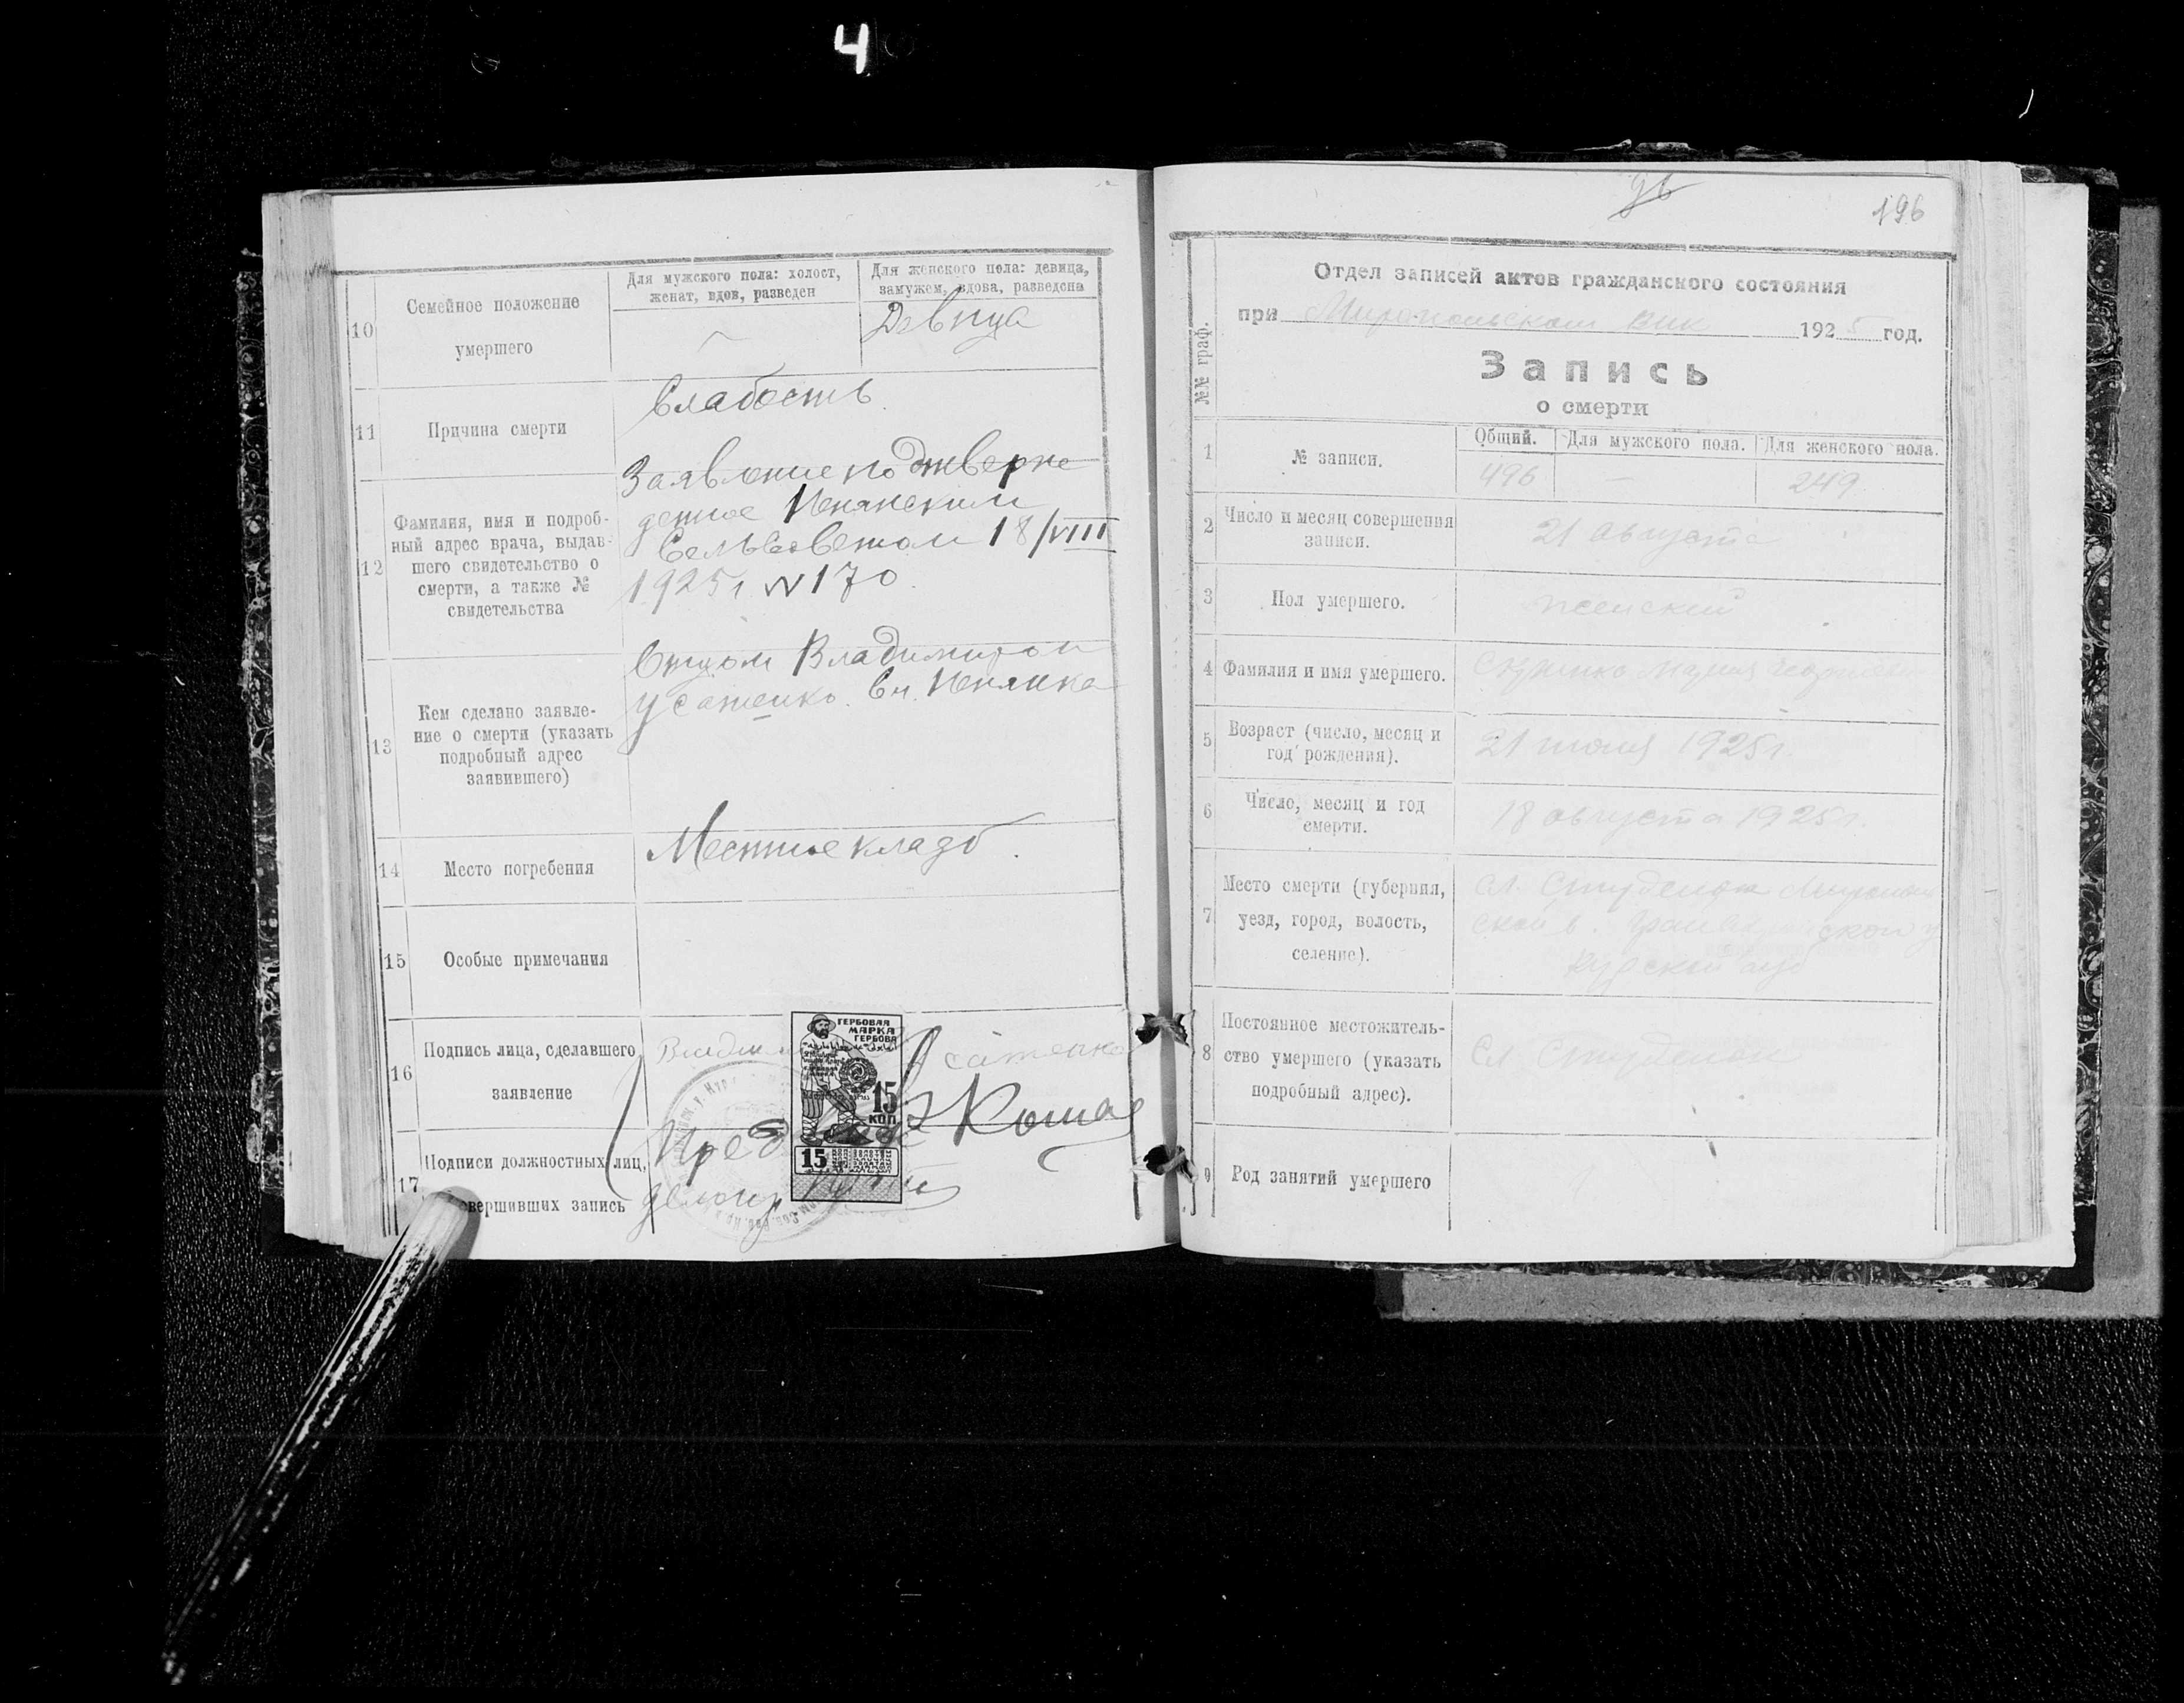 4
10
Семейное положение
умершего
Для мужского пола: холост,
женат, вдов, разведен
Для женского пола: девица,
замужем, вдова, разведена
Девица
11
Причина смерти
Слабость
12
Фамилия, имя и подроб-
ный адрес врача, выдав-
шего свидетельство о
смерти, а также №
свидетельства
Заявление подтверже
денное Пенянским
Сельсоветом 18/VIII
1925 г N 170
13
Кем сделано заявле-
ние о смерти (указать
подробный адрес
заявившего)
Отцом Владимиром
Усатенко. Сл. Пенянка
14
Место погребения
Местное кладб.
15
Особые примечания
16
Подпись лица, сделавшего
заявление
Усатенко
ГЕРБОВАЯ
МАРКА
15
КОП.
15
17
Подписи должностных лиц,
совершивших запись
Пред
96
196
№№ граф.
Отдел записей актов гражданского состояния
при Миропольском вик 1925 год.
Запись
о смерти
1
№ записи.
Общий.
Для мужского пола.
Для женского пола.
496
—
249
2
Число и месяц совершения
записи.
21 августа
3
Пол умершего.
женский
4
Фамилия и имя умершего.
Мария
5
Возраст (число, месяц и
год рождения).
21 1925 г.
6
Число, месяц и год
смерти.
18 августа 1925 г.
7
Место смерти (губерния,
уезд, город, волость,
селение).
сл. Студенок Мирополь
ской в. ской у
Курской губ
8
Постоянное местожитель-
ство умершего (указать
подробный адрес).
Сл. Студенок
9
Род занятий умершего